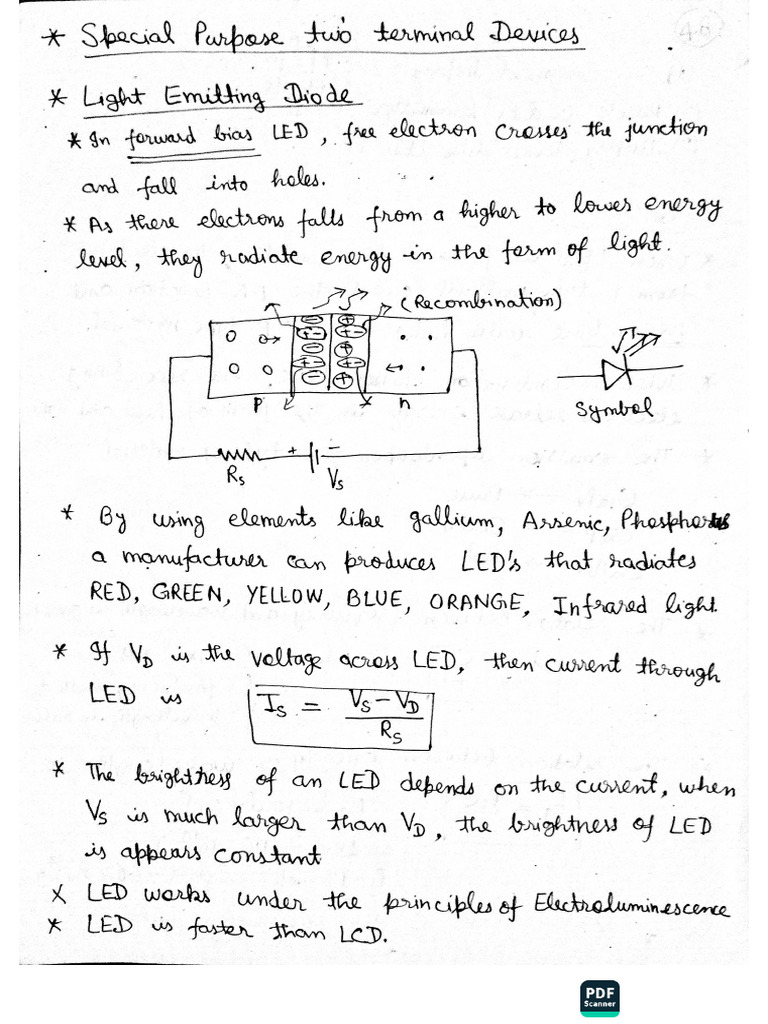 * Special Purpose two terminal Devices
* Light Emitting Diode
* In forward bias LED, free electron crosses the junction
and fall into holes.
* As there electrons falls from a higher to lower energy
level, they radiate energy in the form of light.
(Recombination)
p
n
Symbol
+ −
Rs
Vs
* By using elements like gallium, Arsenic, Phosphorus
a manufacturer can produces LED's that radiates
RED, GREEN, YELLOW, BLUE, ORANGE, Infrared light.
* If VD is the voltage across LED, then current through
LED is Is = Vs − VD / Rs
* The brightness of an LED depends on the current, when
Vs is much larger than VD, the brightness of LED
is appears constant
* LED works under the principles of Electroluminescence
* LED is faster than LCD.
PDF
Scanner